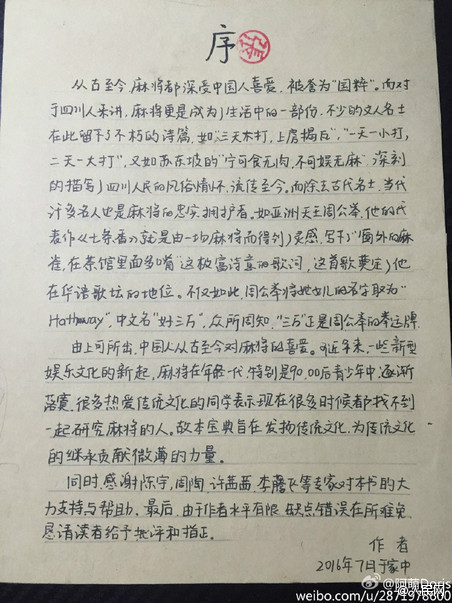 序
从古至今,麻将都深受中国人喜爱,被誉为“国粹”。而对
于四川人来讲,麻将更是成为了生活中的一部份,不少的文人名士
在此留下了不朽的诗篇,如“三天不打,上房揭瓦”,“一天一小打,
二天一大打”,又如苏东坡的“宁可食无肉,不可娱无麻”,深刻
的描写了四川人民的风俗情怀,流传至今。而除去古代名士,当代
许多名人也是麻将的忠实拥护者。如亚洲天王周公举,他的代
表作《七条香》就是由一场麻将而得到了灵感,写下了“窗外的麻
雀,在茶馆里面多嘴”这极富诗意的歌词,这首歌奠定了他
在华语歌坛的地位。不仅如此,周公举将她女儿的名字取为
“Hathaway”,中文名“姓三万”,众所周知,“三万”正是周公举的幸运牌.
由上可所出,中国人从古至今对麻将的喜爱。可近年来,一些新型
娱乐文化的新起,麻将在年轻一代,特别是90、00后青少年中逐渐
落寞,很多热爱传统文化的同学表示现在很多时候都找不到
一起研究麻将的人。故本宝典旨在发扬传统文化,为传统文化
的继承贡献微薄的力量。
同时,感谢陈宇,周陶,许茜茜,李飞等专家对本书的大
力支持与帮助。最后,由于作者水平有限,缺点错误在所难免,
恳请读者给予批评和指正。
作者
2016年7月于家中
@阿萌Doris
@人民网
weibo.com/u/2871976600